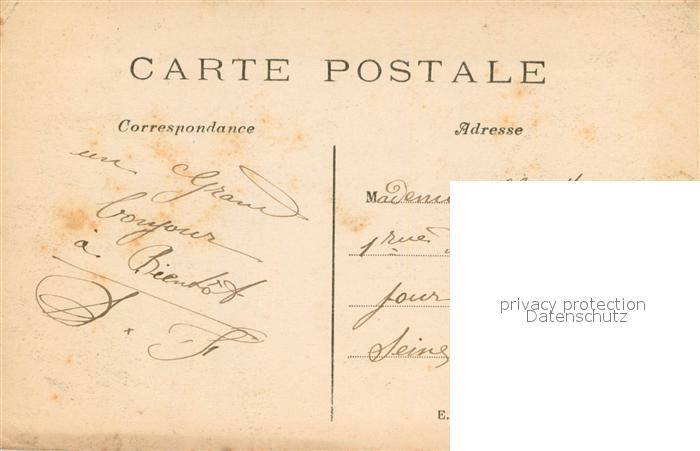 CARTE POSTALE
Correspondance
Adresse
un Grand
bonjour
à Bientôt
Madem
1 rue
jour
Seine
E.
privacy protection
Datenschutz